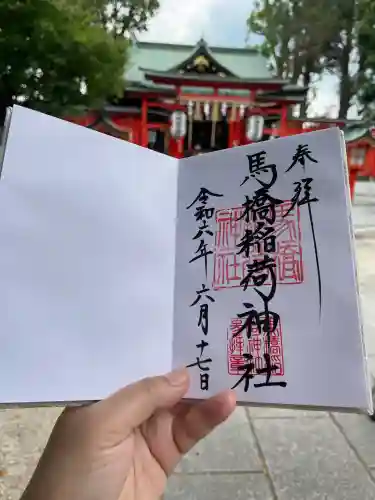 奉拝
馬橋稲荷神社
令和六年六月十七日